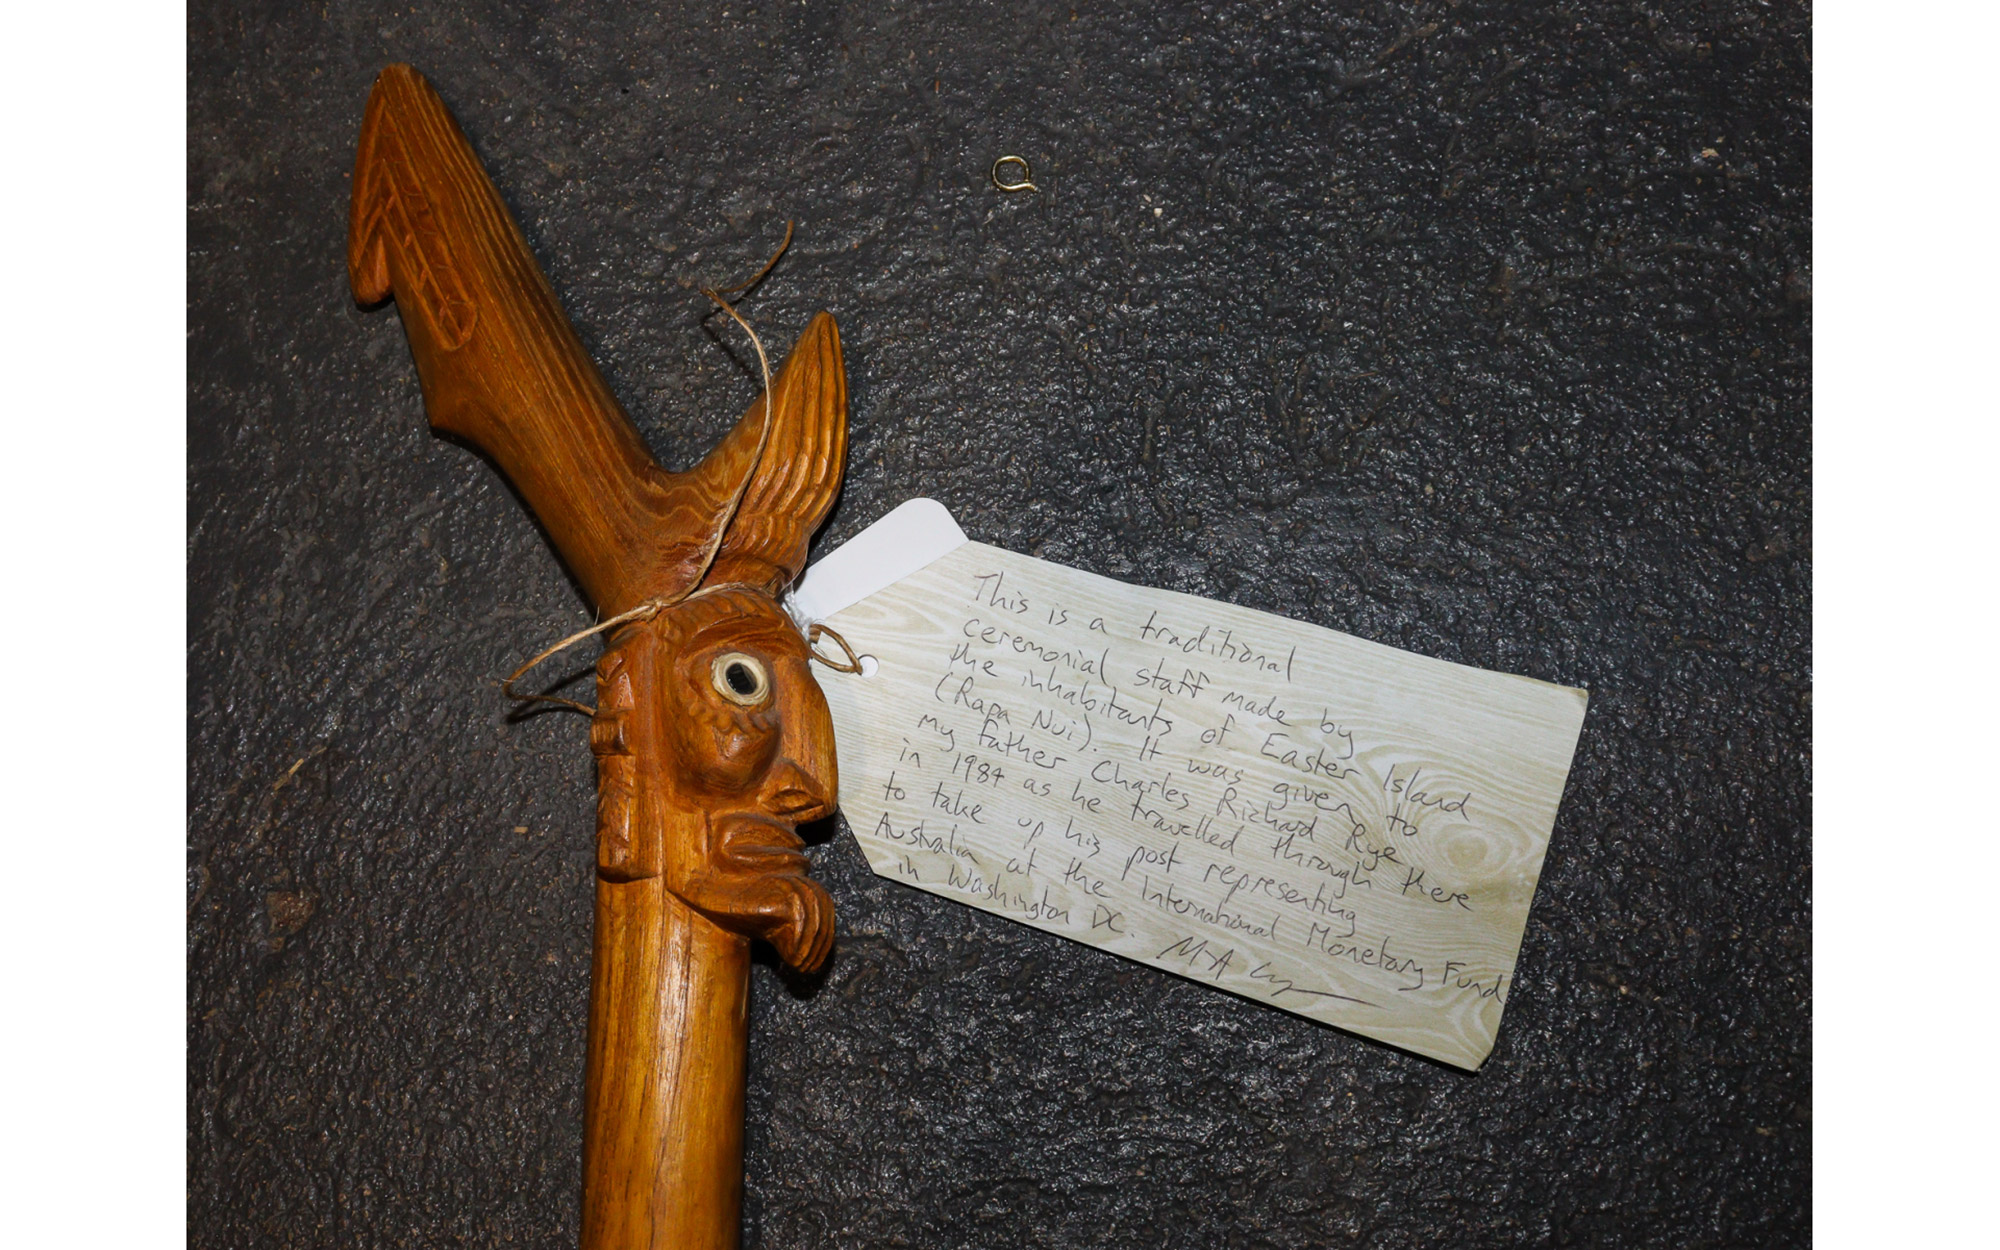 This is a traditional
ceremonial staff made by
the inhabitants of Easter Island
(Rapa Nui). It was given to
my father Charles Richard Rye
in 1984 as he travelled through there
to take up his post representing
Australia at the International Monetary Fund
in Washington DC.